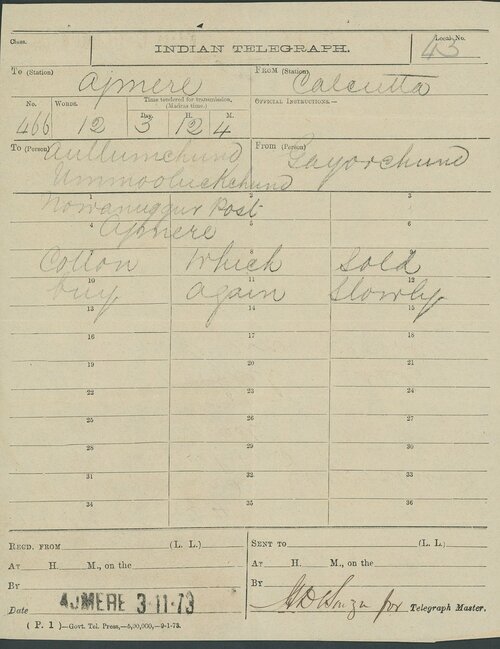 Class.
INDIAN TELEGRAPH.
Local No.
43
To (Station) Ajmere
FROM (Station) Calcutta
No. WORDS. Time tendered for transmission, (Madras time.)
Day. H. M.
466 12 3 12 4
OFFICIAL INSTRUCTIONS.—
To (Person) Aullumchund
Ummooluckchund
From (Person) Gayorchund
1 2 3
Nowanuggur Post
4 5 6
Ajmere
7 8 9
Cotton which sold
10 11 12
buy again slowly
13 14 15
16 17 18
19 20 21
22 23 24
25 26 27
28 29 30
31 32 33
34 35 36
RECD. FROM (L. L.)
AT H. M., on the
BY
Date AJMERE 3-11-73
SENT TO (L. L.)
AT H. M., on the
BY
for Telegraph Master.
( P. 1 )—Govt. Tel. Press,—5,00,000,—9-1-73.